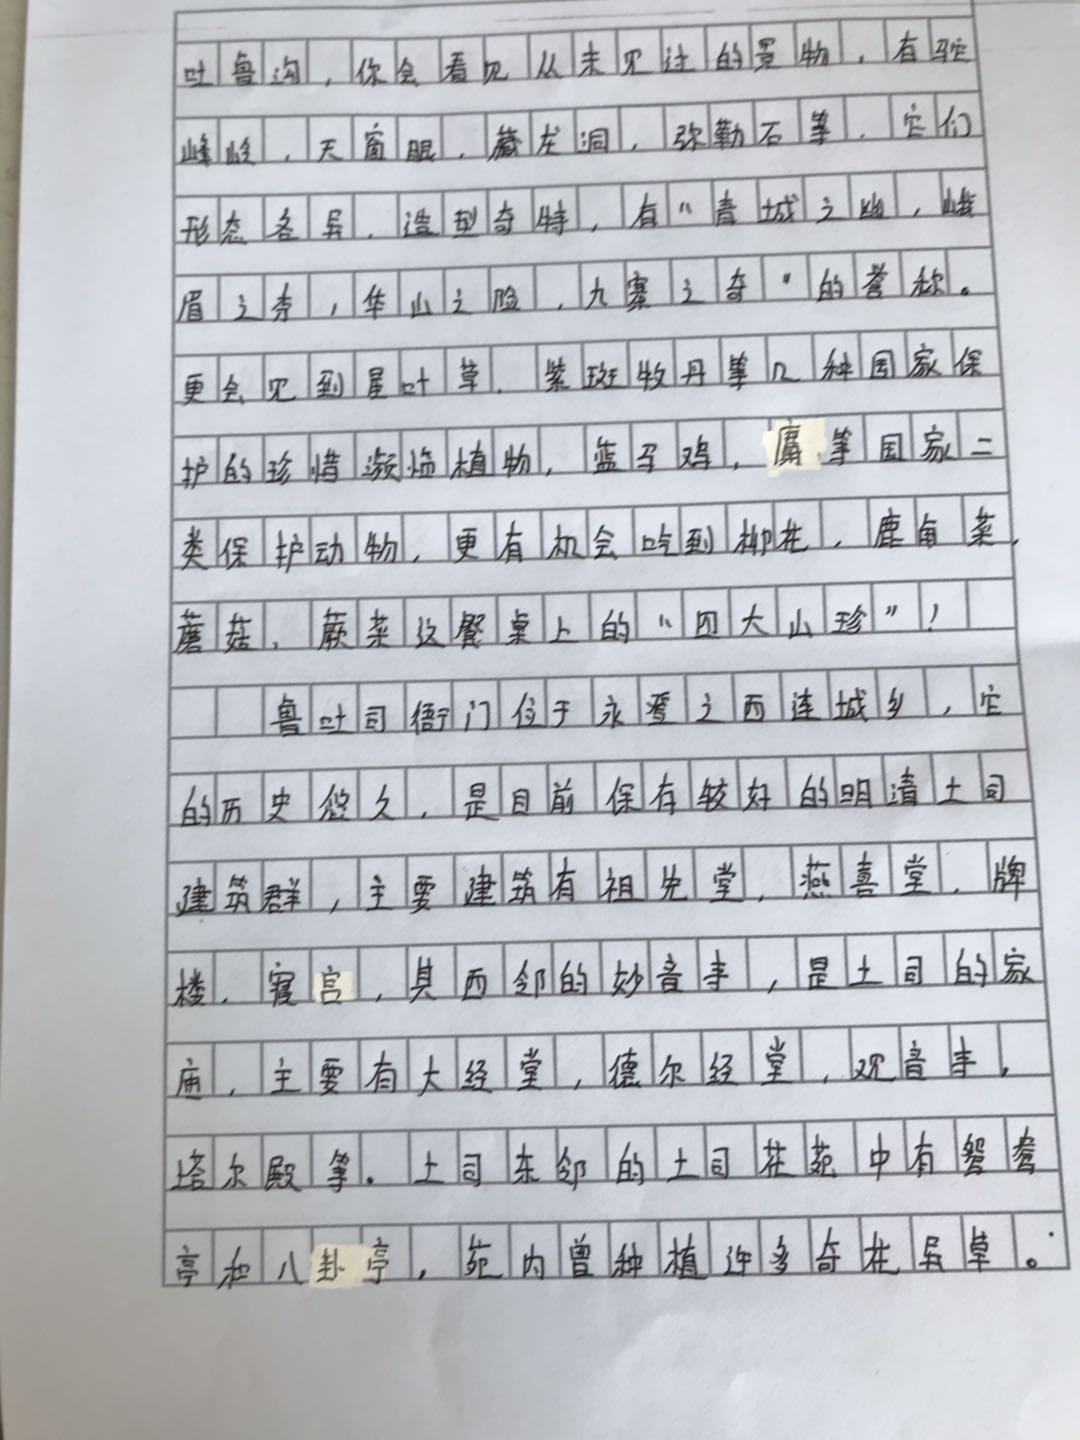 吐鲁沟，你会看见从未见过的景物，有驼
峰岭、天窗眼、藏龙洞，弥勒石等，它们
形态各异，造型奇特，有“青城之幽，峨
眉之秀，华山之险，九寨之奇”的誉称。
更会见到星叶草、紫斑牧丹等几种国家保
护的珍惜濒临植物，蓝马鸡，麝等国家二
类保护动物，更有机会吃到柳花，鹿角菜，
蘑菇，蕨菜这餐桌上的“四大山珍”！
鲁吐司衙门位于永登之西连城乡，它
的历史悠久，是目前保存较好的明清土司
建筑群，主要建筑有祖先堂，燕喜堂，牌
楼，寝宫，其西邻的妙音寺，是土司的家
庙，主要有大经堂，德尔经堂，观音寺，
塔尔殿等。土司东邻的土司花苑中有鸳鸯
亭和八卦亭，苑内曾种植许多奇花异草。